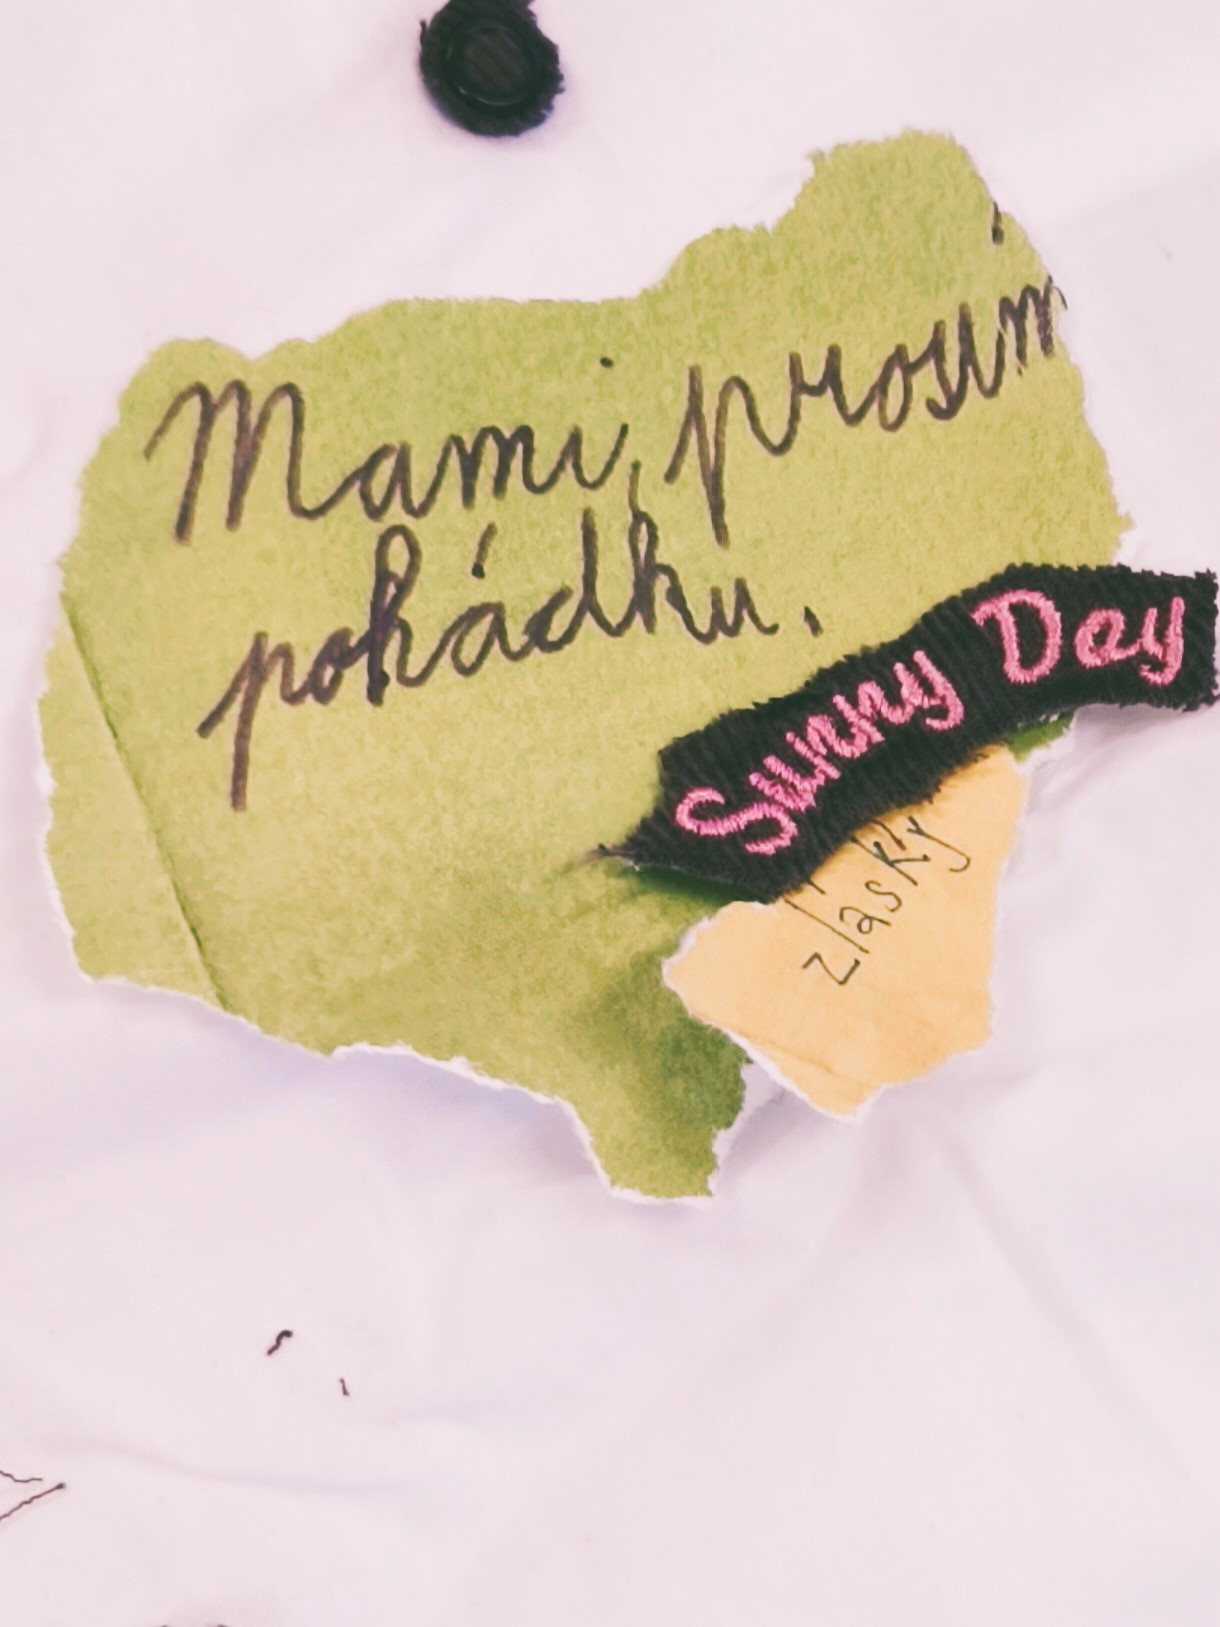 Mami, prosím
pohádku.
Sunny Day
z lásky